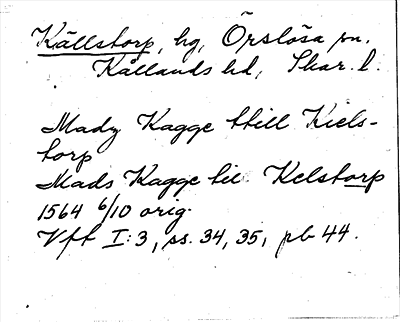 Källstorp, hg, Örslösa sn.
Kållands hd, Skar. l.
Madz Kagge thill Kiels-
torp
Mads Kagge til Kelstorp
1564 6/10 orig.
Vft I:3, ss. 34, 35, pb 44.